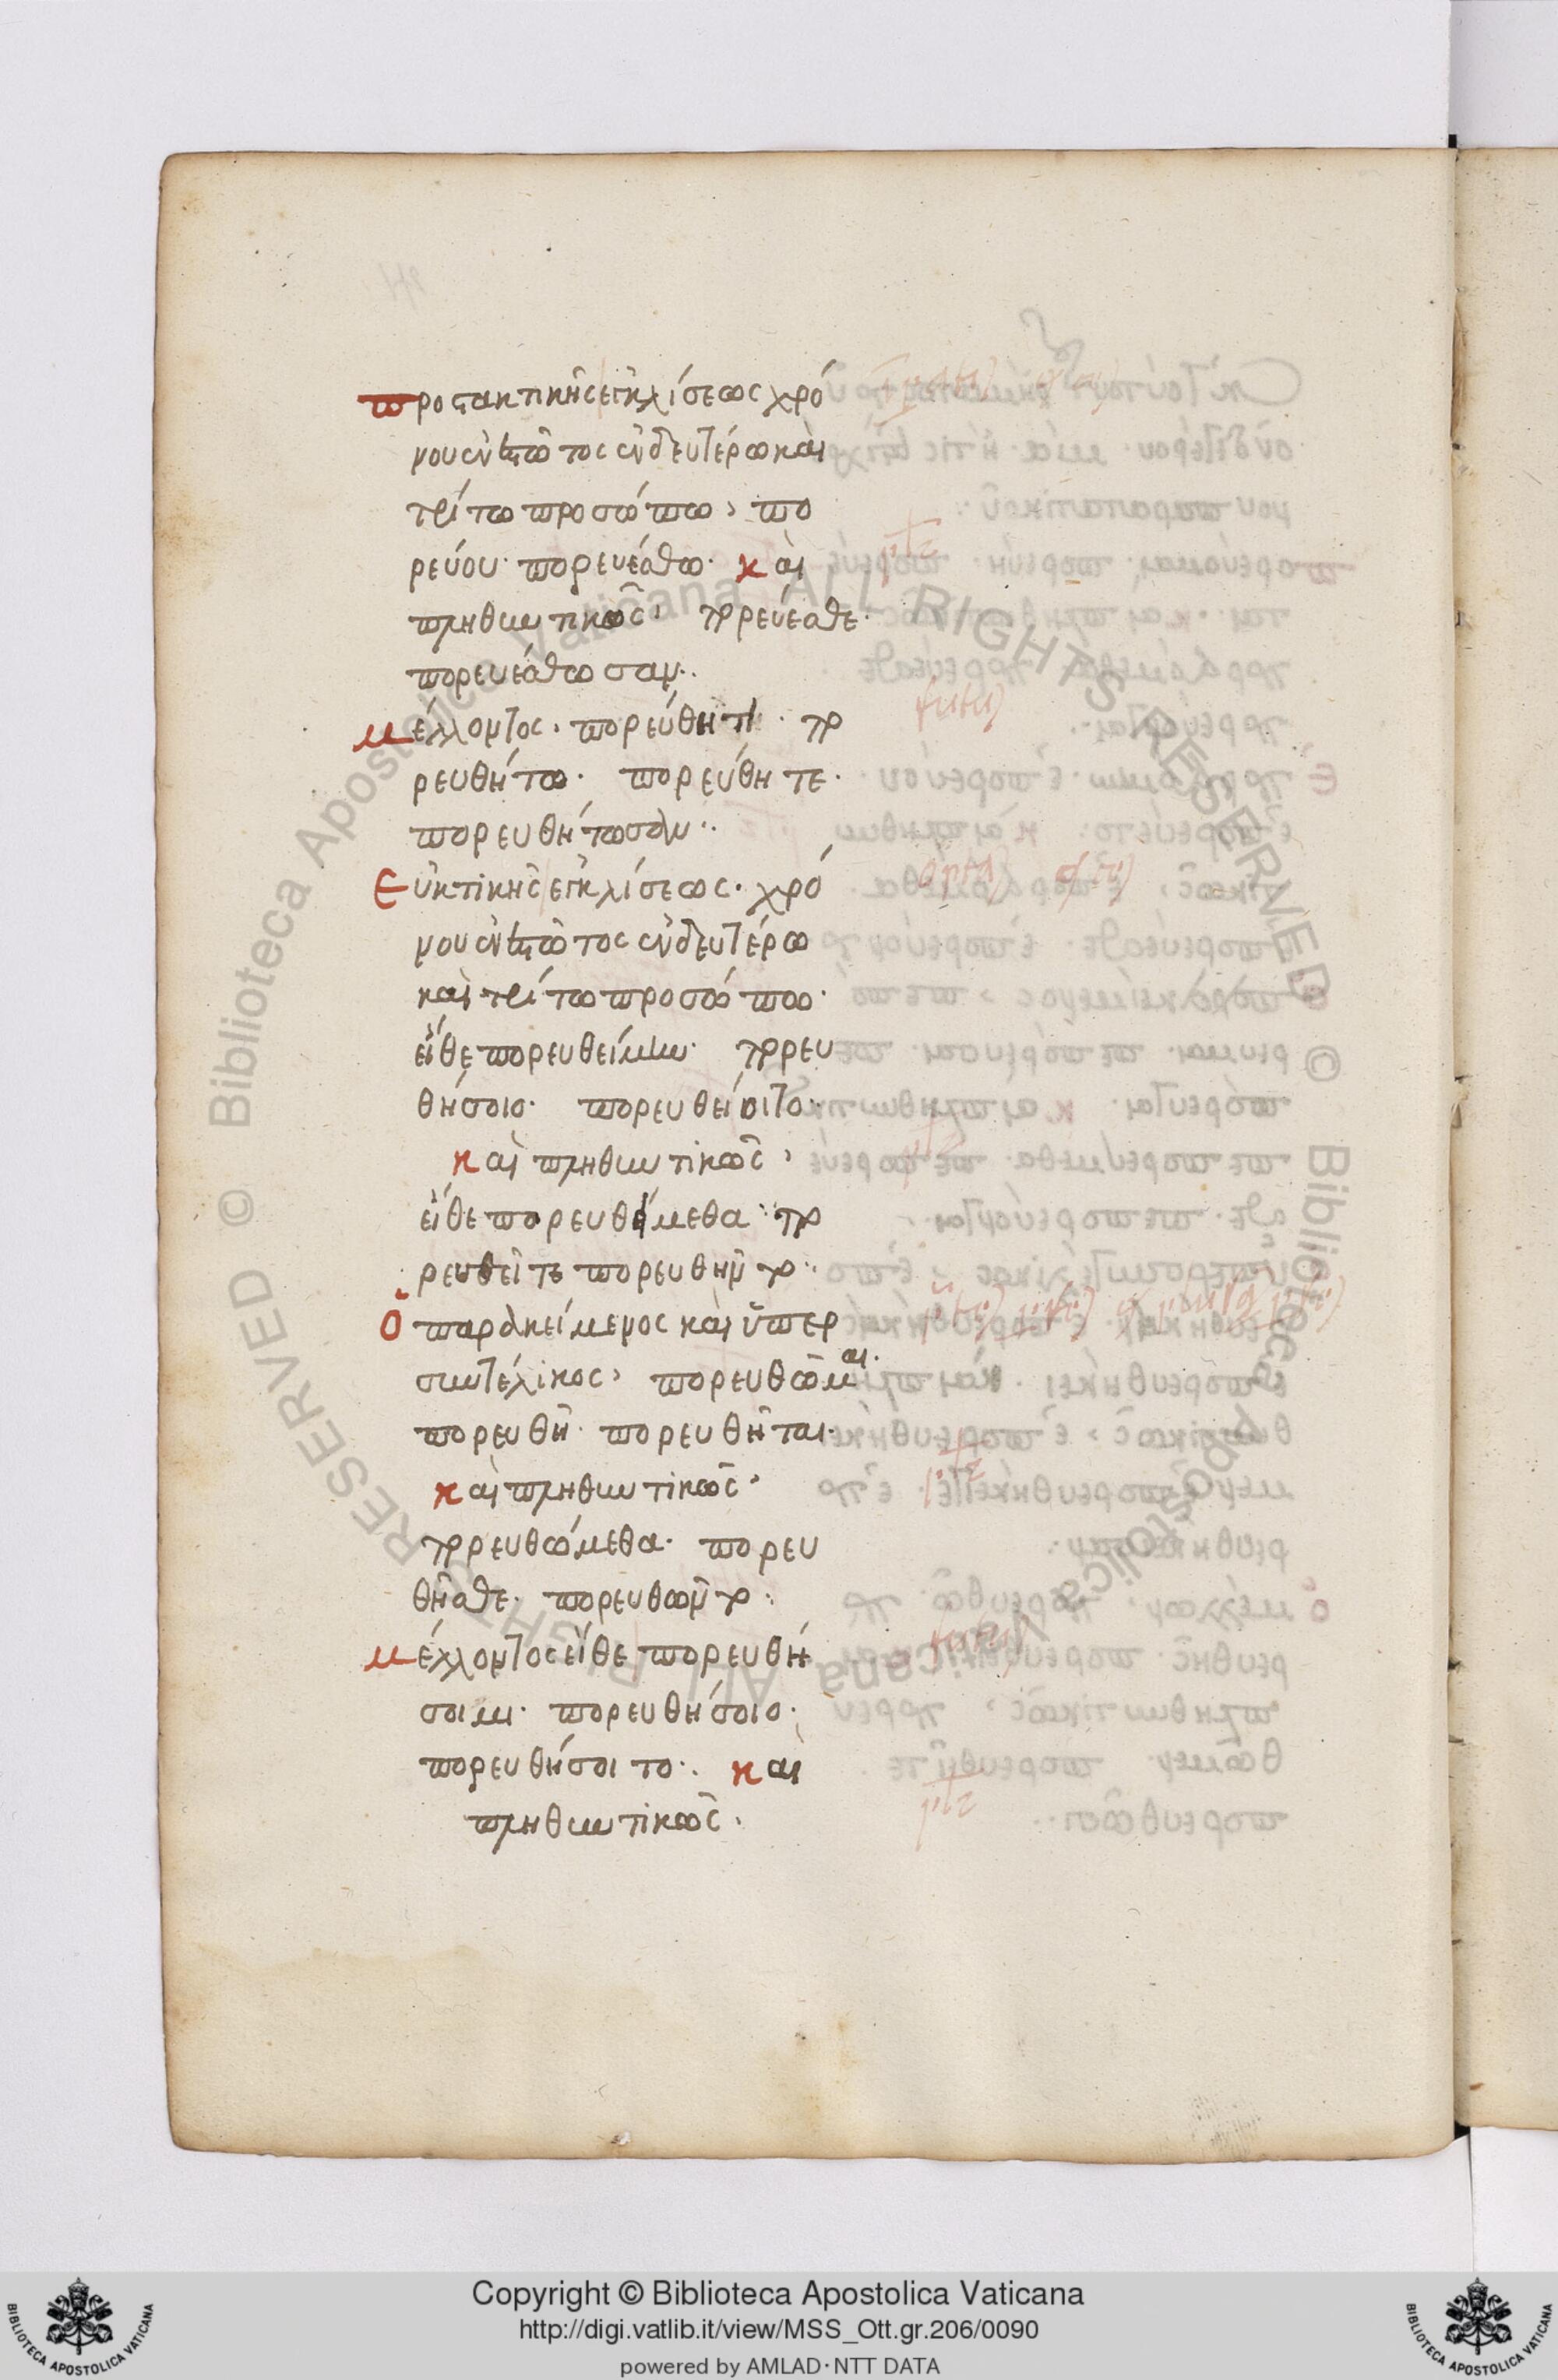 προστακτικῆς ἐγκλίσεως χρό
νου ἐνεστῶτος ἐν δευτέρω καὶ
τρίτω προσώπω, πο
ρεύου· πορευέσθω· καὶ
πληθυντικῶς, πορεύεσθε·
πορευέσθωσαν··
μέλλοντος, πορεύθητι· πο
ρευθήτω· πορεύθητε·
πορευθήτωσαν··
Εὐκτικῆς ἐγκλίσεως· χρό
νου ἐνεστῶτος ἐν δευτέρω
καὶ τρίτω προσώπω·
εἴθε πορευθείμην· πορευ
θήσοιο· πορευθείοιτο··
καὶ πληθυντικῶς,
εἴθε πορευθείμεθα· πο
ρευθεῖτε πορευθην
ὁ παρακείμενος καὶ ὑπερ
συντέλικος, πορευθῶμαι·
πορευθῆ· πορευθῆται·
καὶ πληθυντικῶς,
πορευθώμεθα· πορευ
θῆσθε· πορευθῶντο··
μέλλοντος εἴθε πορευθή
σοιμι· πορευθήσοιο·
πορευθήσοιτο·· καὶ
πληθυντικῶς·
Copyright © Biblioteca Apostolica Vaticana
http://digi.vatlib.it/view/MSS_Ott.gr.206/0090
powered by AMLAD·NTT DATA
BIBLIOTECA APOSTOLICA VATICANA
BIBLIOTECA APOSTOLICA VATICANA
© Biblioteca Apostolica Vaticana ALL RIGHTS RESERVED
© Biblioteca Apostolica Vaticana ALL RIGHTS RESERVED